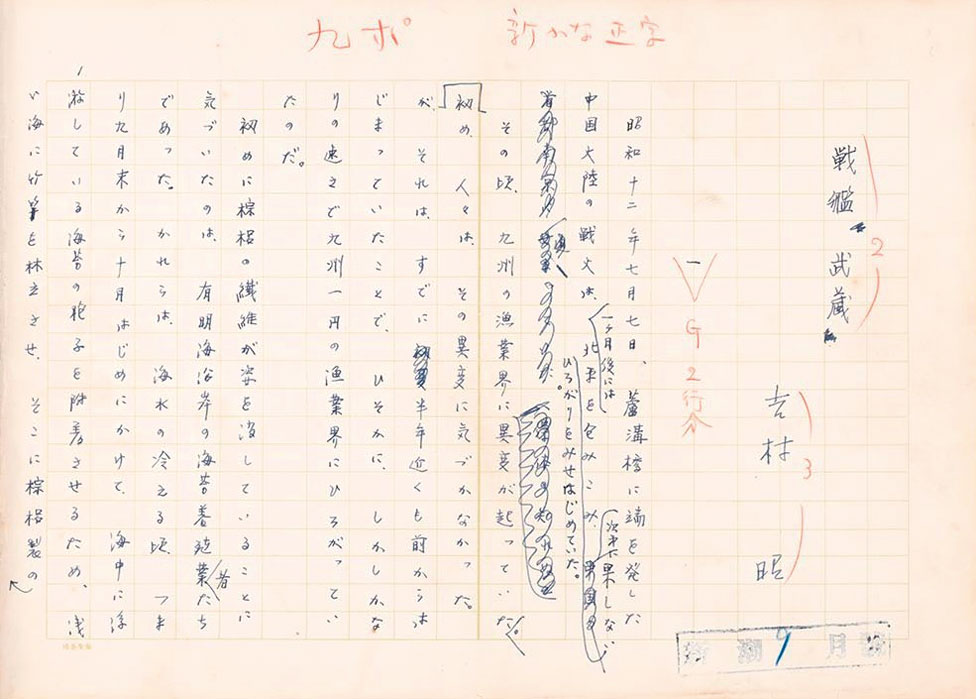 九ポ 新かな正字
戦艦武蔵
2
吉村昭
3
一
G2行分
昭和十二年七月七日、蘆溝橋に端を発した
中国大陸の戦火は、一ヶ月後には北平を包みこみ、次第に果しない
ひろがりをみせはじめていた。
その頃、九州の漁業界に異変が起っていた。
初め、人々は、その異変に気づかなかった。
が、それは、すでに半年近くも前からは
じまっていたことで、ひそかに、しかしかな
りの速さで九州一円の漁業界にひろがってい
たのだ。
初めに棕梠の繊維が姿を没していることに
気づいたのは、有明海沿岸の海苔養殖業者たち
であった。かれらは、海水の冷える頃、つま
り九月末から十月はじめにかけて、海中に浮
游している海苔の胞子を附着させるため、浅
い海に竹竿を林立させ、そこに棕梠製の
1
新潮 9月号